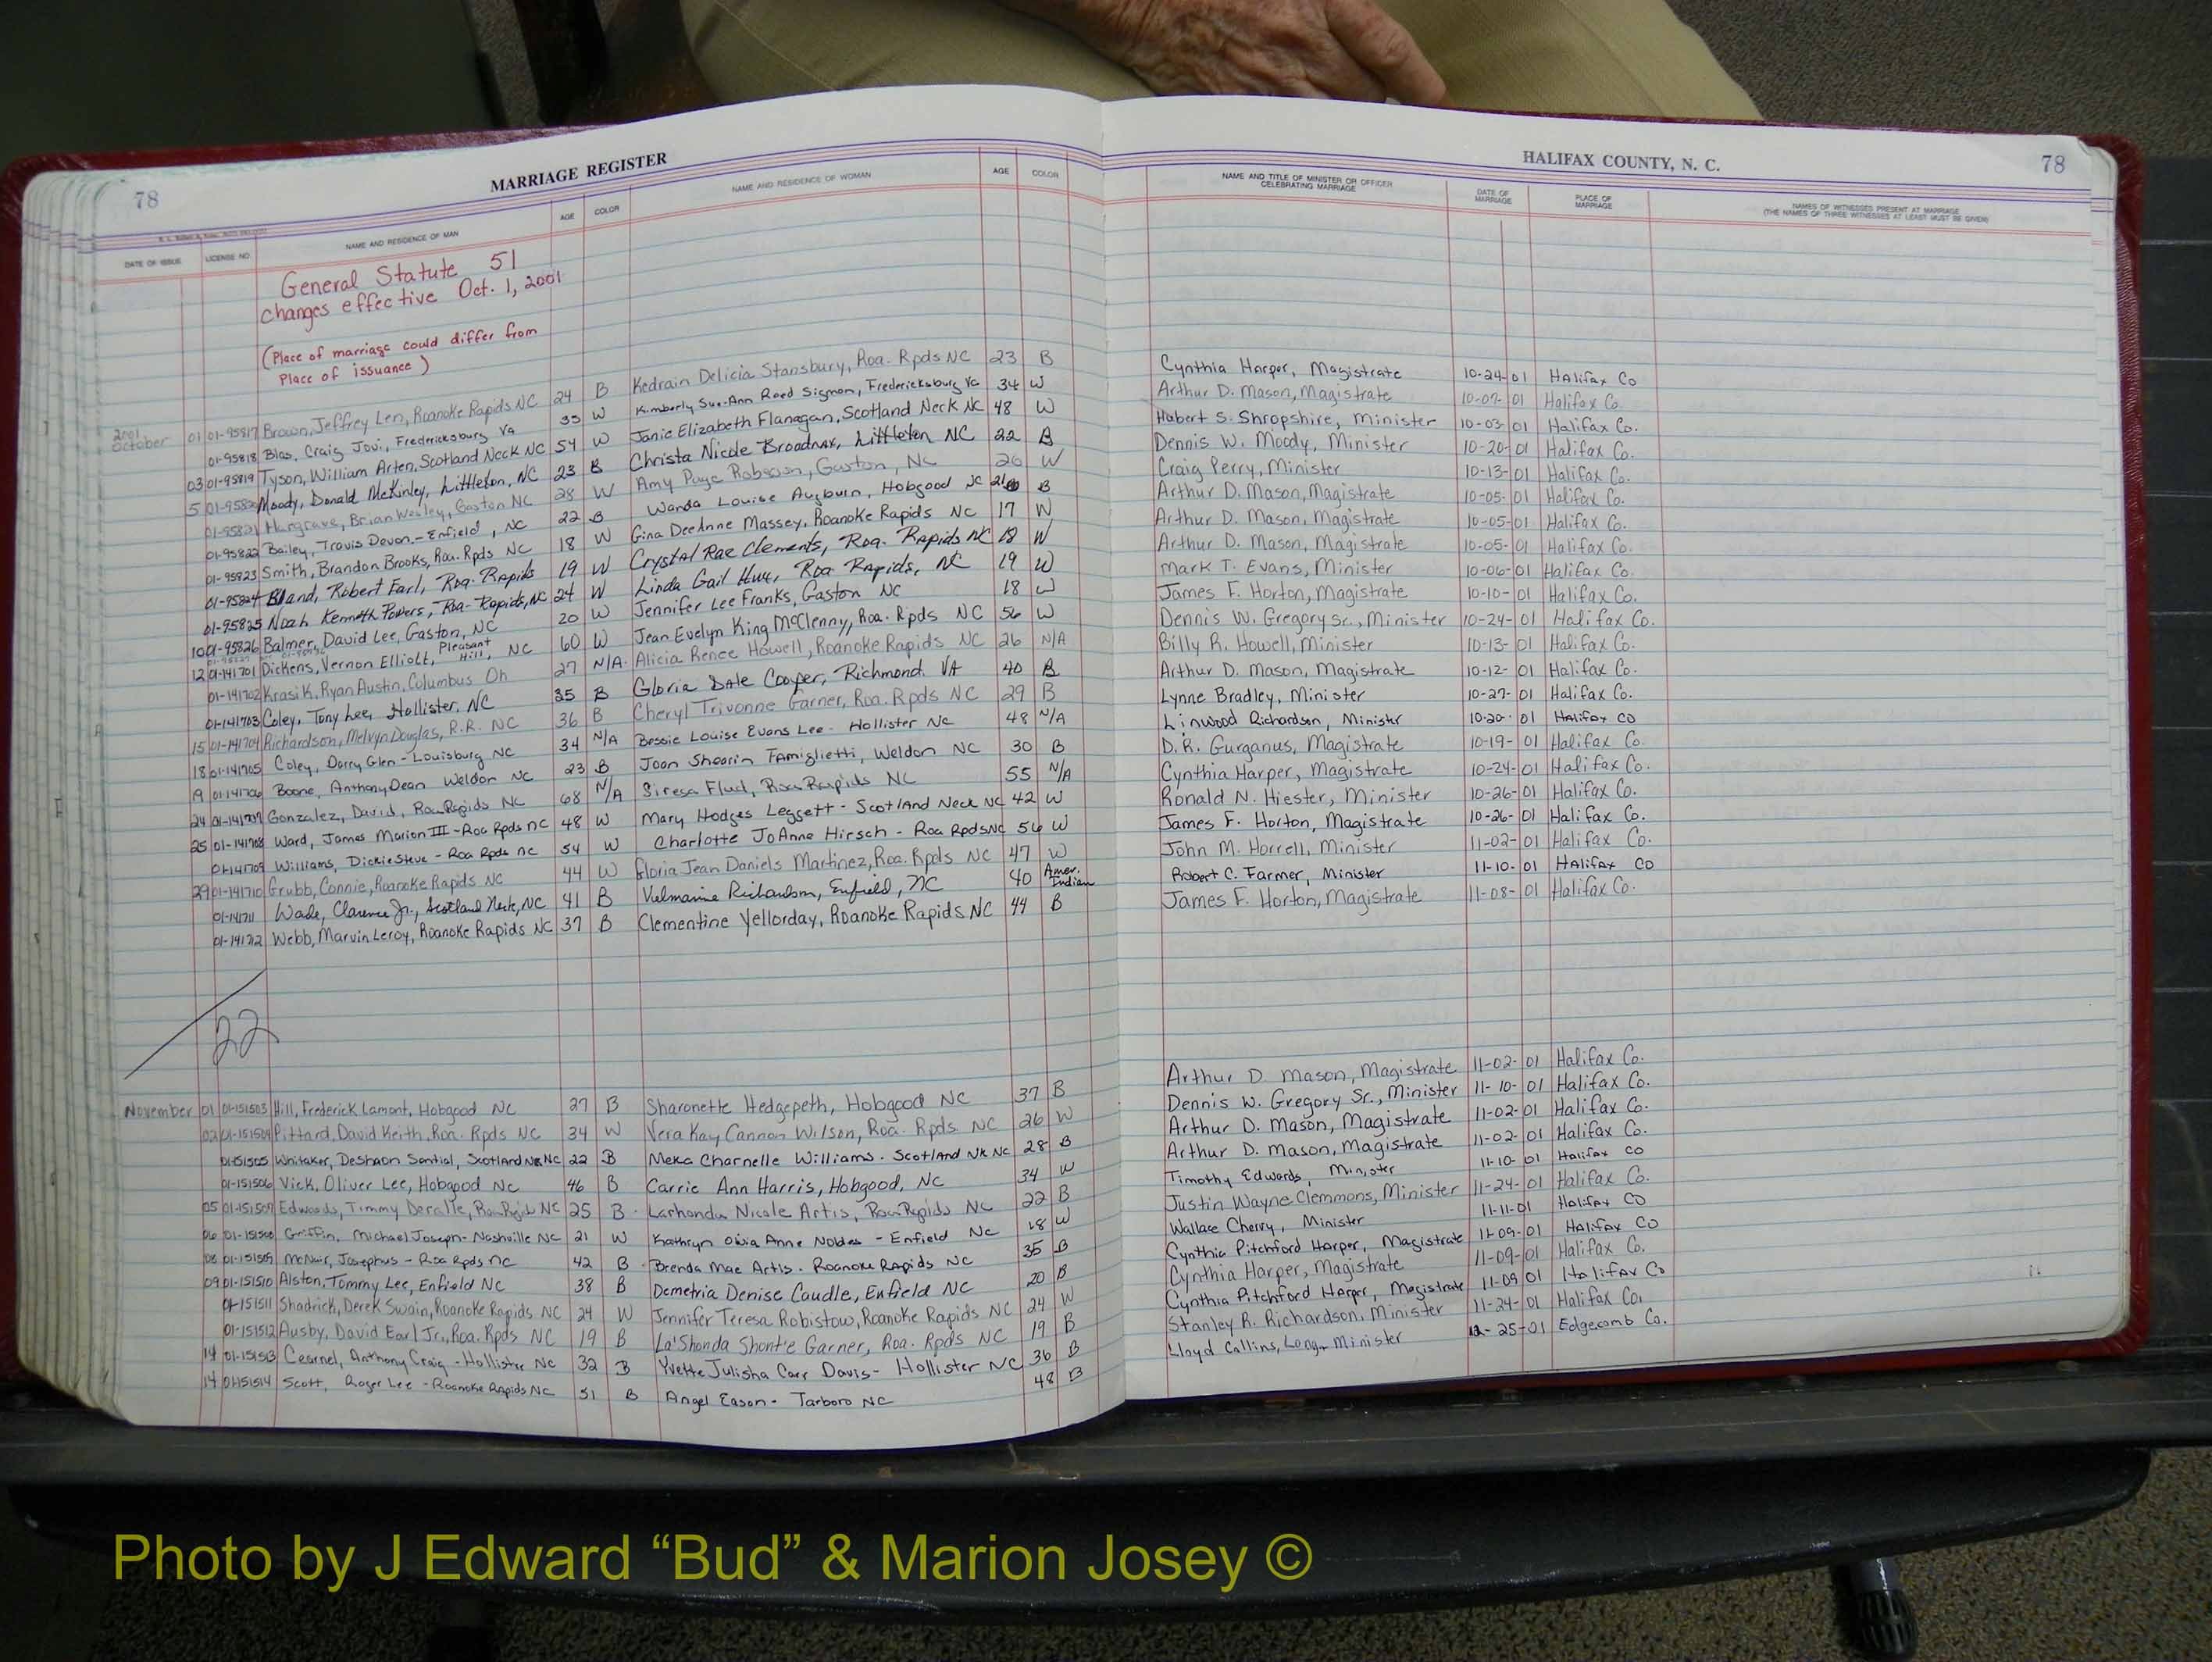 78
MARRIAGE REGISTER
HALIFAX COUNTY, N. C.
78
DATE OF ISSUE LICENSE NO. NAME AND RESIDENCE OF MAN AGE COLOR NAME AND RESIDENCE OF WOMAN AGE COLOR
NAME AND TITLE OF MINISTER OR OFFICER CELEBRATING MARRIAGE DATE OF MARRIAGE PLACE OF MARRIAGE NAMES OF WITNESSES PRESENT AT MARRIAGE (THE NAMES OF THREE WITNESSES AT LEAST MUST BE GIVEN)
General Statute 51
changes effective Oct. 1, 2001
(Place of marriage could differ from
Place of issuance)
2001 October 01 01-95817 Brown, Jeffrey Len, Roanoke Rapids NC 24 B Kedrain Delicia Stansbury, Roa. Rpds NC 23 B
01-95818 Blas, Craig Jovi, Fredericksburg Va W Kimberly Sue-Ann Reed Sigmon, Fredericksburg Va 34 W
03 01-95819 Tyson, William Arten, Scotland Neck NC 54 W Janie Elizabeth Flanagan, Scotland Neck NC 48 W
5 01-95820 Moody, Donald McKinley, Littleton, NC 23 B Christa Nicole Broadnax, Littleton NC 22 B
01-95821 Hargrave, Brian Wesley, Gaston NC 28 W Amy Page Robeson, Gaston, NC 26 W
01-95822 Bailey, Travis Devon - Enfield, NC 22 B Wanda Louise Augburn, Hobgood NC 21 B
01-95823 Smith, Brandon Brooks, Roa. Rpds NC 18 W Gina DeeAnne Massey, Roanoke Rapids NC 17 W
01-95824 Bland, Robert Earl, Roa. Rapids 19 W Crystal Rae Clements, Roa. Rapids NC 18 W
01-95825 Noah Kenneth Powers, Roa. Rapids, NC 24 W Linda Gail Hux, Roa. Rapids, NC 19 W
10 01-95826 Balmer, David Lee, Gaston, NC 20 W Jennifer Lee Franks, Gaston NC 18 W
12 01-141701 Dickens, Vernon Elliott, Pleasant Hill, NC 60 W Jean Evelyn King McClenny, Roa. Rpds NC 56 W
01-141702 Krasik, Ryan Austin, Columbus Oh 27 N/A Alicia Renee Howell, Roanoke Rapids NC 26 N/A
01-141703 Coley, Tony Lee, Hollister, NC 35 B Gloria Dale Cooper, Richmond, VA 40 B
15 01-141704 Richardson, Melvyn Douglas, R.R. NC 36 B Cheryl Trivonne Garner, Roa. Rpds NC 29 B
18 01-141705 Coley, Darry Glen - Louisburg NC 34 N/A Bessie Louise Evans Lee - Hollister NC 48 N/A
19 01-141706 Boone, Anthony Dean Weldon NC 23 B Joan Shearin Famiglietti, Weldon NC 30 B
24 01-141707 Gonzalez, David, Roa Rapids NC 68 N/A Siresa Flud, Roa Rapids NC 55 N/A
25 01-141708 Ward, James Marion III - Roa Rpds NC 48 W Mary Hodges Leggett - Scotland Neck NC 42 W
01-141709 Williams, Dickie Steve - Roa Rpds NC 54 W Charlotte JoAnne Hirsch - Roa Rpds NC 56 W
29 01-141710 Grubb, Connie, Roanoke Rapids NC 44 W Gloria Jean Daniels Martinez, Roa. Rpds NC 47 W
01-141711 Wade, Clarence Jr., Scotland Neck, NC 41 B Velmarine Richardson, Enfield, NC 40 Amer. Indian
01-141712 Webb, Marvin Leroy, Roanoke Rapids NC 37 B Clementine Yellorday, Roanoke Rapids NC 44 B
22
November 01 01-151503 Hill, Frederick Lamont, Hobgood NC 27 B Sharonette Hedgepeth, Hobgood NC 37 B
02 01-151504 Pittard, David Keith, Roa. Rpds NC 34 W Vera Kay Cannon Wilson, Roa. Rpds NC 26 W
01-151505 Whitaker, DeShaon Sential, Scotland Nk NC 22 B Meka Charnelle Williams - Scotland Nk NC 28 B
01-151506 Vick, Oliver Lee, Hobgood NC 46 B Carrie Ann Harris, Hobgood, NC 34 W
05 01-151507 Edwards, Timmy Deralle, Roa Rapids NC 25 B Lashonda Nicole Artis, Roa Rapids NC 22 B
06 01-151508 Griffin, Michael Joseph - Nashville NC 21 W Kathryn Anne Nobles - Enfield NC 18 W
08 01-151509 McNair, Josephus - Roa Rpds NC 42 B Brenda Mae Artis - Roanoke Rapids NC 35 B
09 01-151510 Alston, Tommy Lee, Enfield NC 38 B Demetria Denise Caudle, Enfield NC 20 B
01-151511 Shadrick, Derek Swain, Roanoke Rapids NC 24 W Jennifer Teresa Robistow, Roanoke Rapids NC 24 W
01-151512 Ausby, David Earl Jr., Roa. Rpds NC 19 B La'Shonda Shonte Garner, Roa. Rpds NC 19 B
14 01-151513 Cearnel, Anthony Craig - Hollister NC 32 B Yvette Julisha Carr Davis - Hollister NC 36 B
14 01-151514 Scott, Roger Lee - Roanoke Rapids NC 51 B Angel Eason - Tarboro NC 48 B
Cynthia Harper, Magistrate 10-24-01 Halifax Co
Arthur D. Mason, Magistrate 10-07-01 Halifax Co.
Hubert S. Shropshire, Minister 10-03-01 Halifax Co.
Dennis W. Moody, Minister 10-20-01 Halifax Co.
Craig Perry, Minister 10-13-01 Halifax Co.
Arthur D. Mason, Magistrate 10-05-01 Halifax Co.
Arthur D. Mason, Magistrate 10-05-01 Halifax Co.
Arthur D. Mason, Magistrate 10-05-01 Halifax Co.
Mark T. Evans, Minister 10-06-01 Halifax Co.
James F. Horton, Magistrate 10-10-01 Halifax Co.
Dennis W. Gregory Sr., Minister 10-24-01 Halifax Co.
Billy R. Howell, Minister 10-13-01 Halifax Co.
Arthur D. Mason, Magistrate 10-12-01 Halifax Co.
Lynne Bradley, Minister 10-27-01 Halifax Co.
Linwood Richardson, Minister 10-20-01 Halifax Co
D. R. Gurganus, Magistrate 10-19-01 Halifax Co.
Cynthia Harper, Magistrate 10-24-01 Halifax Co.
Ronald N. Hiester, Minister 10-26-01 Halifax Co.
James F. Horton, Magistrate 10-26-01 Halifax Co.
John M. Horrell, Minister 11-02-01 Halifax Co.
Robert C. Farmer, Minister 11-10-01 Halifax Co
James F. Horton, Magistrate 11-08-01 Halifax Co.
Arthur D. Mason, Magistrate 11-02-01 Halifax Co.
Dennis W. Gregory Sr., Minister 11-10-01 Halifax Co.
Arthur D. Mason, Magistrate 11-02-01 Halifax Co.
Arthur D. Mason, Magistrate 11-02-01 Halifax Co.
Timothy Edwards, Minister 11-10-01 Halifax Co
Justin Wayne Clemmons, Minister 11-24-01 Halifax Co.
Wallace Cherry, Minister 11-11-01 Halifax Co
Cynthia Pitchford Harper, Magistrate 11-09-01 Halifax Co
Cynthia Harper, Magistrate 11-09-01 Halifax Co.
Cynthia Pitchford Harper, Magistrate 11-09-01 Halifax Co
Stanley R. Richardson, Minister 11-24-01 Halifax Co.
Lloyd Collins, Long, Minister 12-25-01 Edgecomb Co.
Photo by J Edward “Bud” & Marion Josey ©